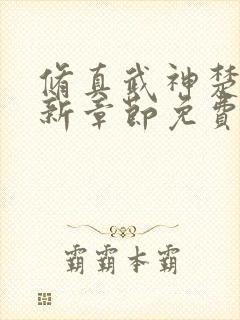 脩真武神楚
新章節免費
霸霸本霸